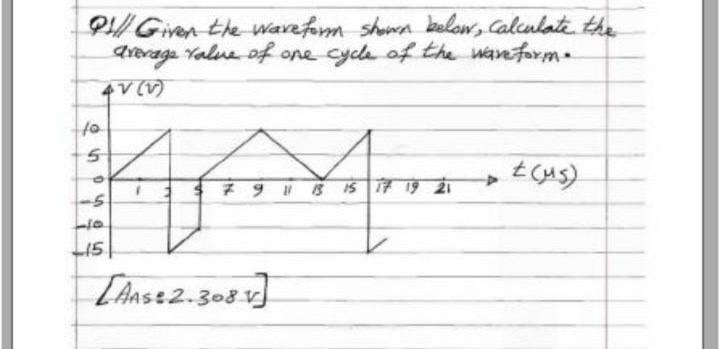 Q1// Given the waveform shown below, Calculate the
average value of one cycle of the waveform.
V (V)
10
5
0
-5
-10
-15
1 3 5 7 9 11 13 15 17 19 21
t (μs)
[Ans: 2.308 V]